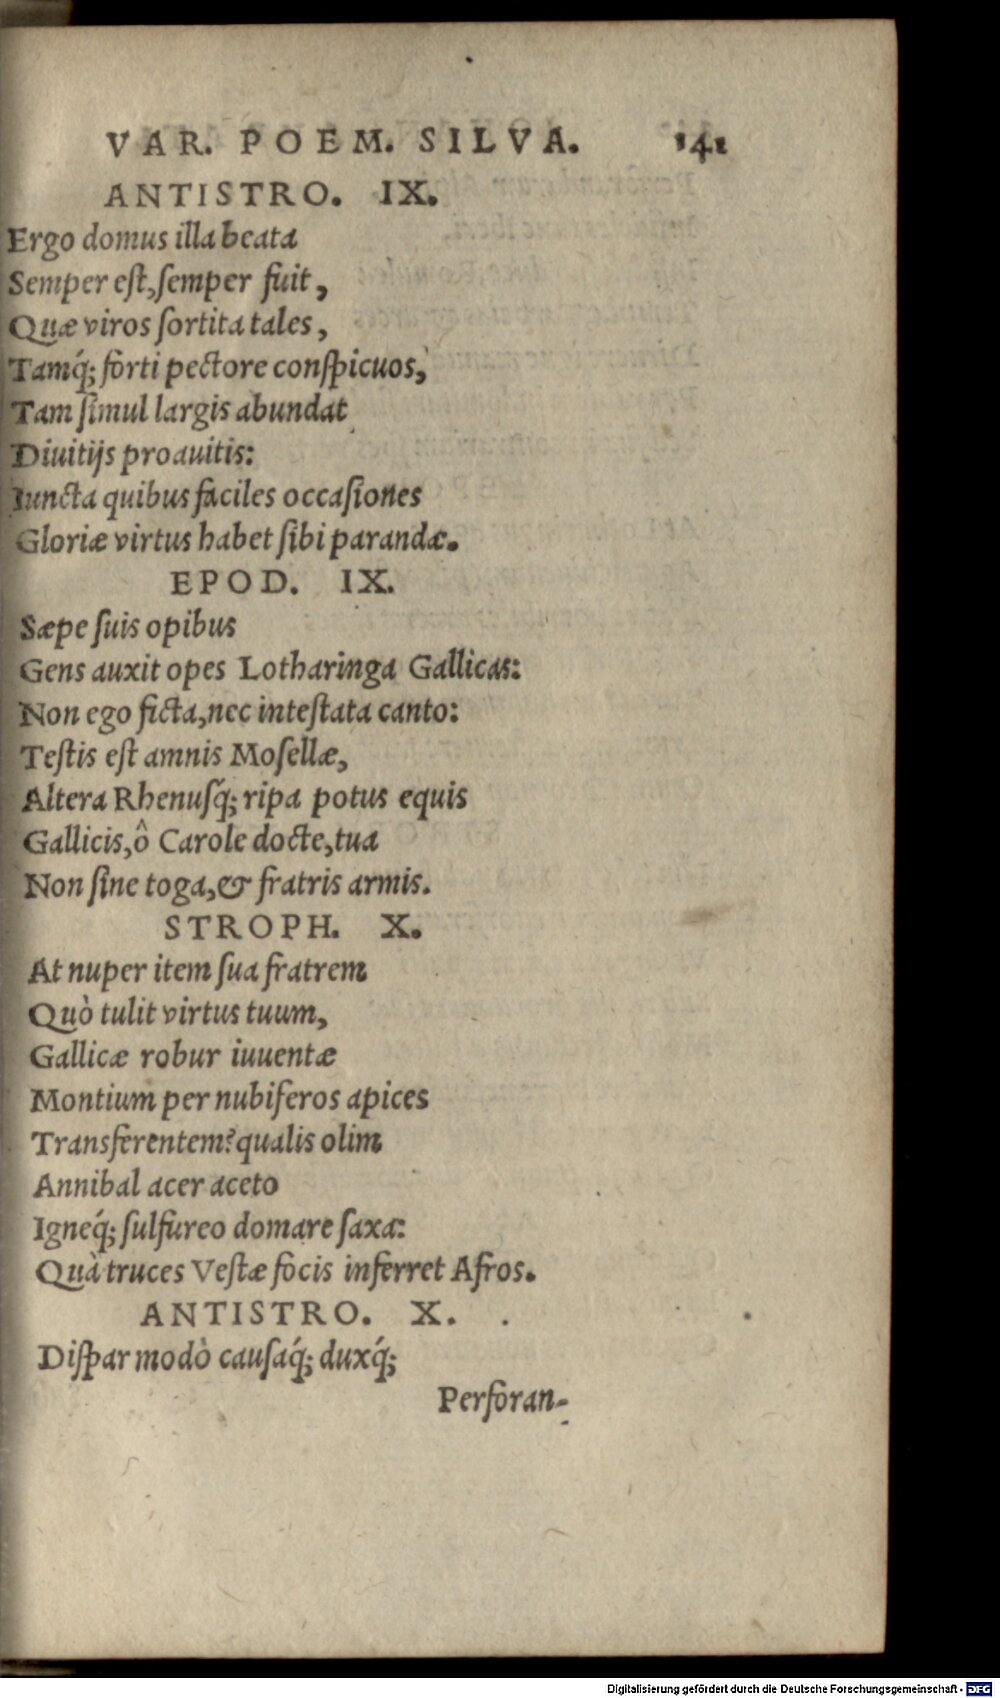 VAR. POEM. SILVA. 141
ANTISTRO. IX.
Ergo domus illa beata
Semper eſt, ſemper fuit,
Quæ viros ſortita tales,
Tamq́; forti pectore conſpicuos,
Tam ſimul largis abundat
Diuitijs proauitis:
Iuncta quibus faciles occaſiones
Gloriæ virtus habet ſibi parandæ.
EPOD. IX.
Sæpe ſuis opibus
Gens auxit opes Lotharinga Gallicas:
Non ego ficta, nec inteſtata canto:
Teſtis eſt amnis Moſellæ,
Altera Rhenuſq́; ripa potus equis
Gallicis, ô Carole docte, tua
Non ſine toga, & fratris armis.
STROPH. X.
At nuper item ſua fratrem
Quò tulit virtus tuum,
Gallicæ robur iuuentæ
Montium per nubiferos apices
Transferentem? qualis olim
Annibal acer aceto
Igneq́; ſulfureo domare ſaxa:
Quà truces Veſtæ focis inferret Afros.
ANTISTRO. X.
Diſpar modò cauſaq́; duxq́;
Perforan-
Digitalisierung gefördert durch die Deutsche Forschungsgemeinschaft - DFG